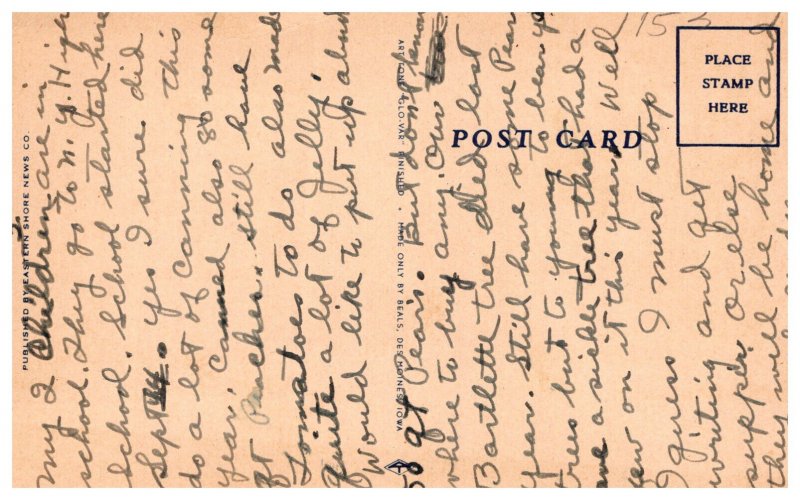 PUBLISHED BY EASTERN SHORE NEWS CO.
my 2 children are in
school. They go to N. Y. High
school. School started here
Sept 4. Yes I sure did
do a lot of canning this
year. Canned also 80 some
qt Peaches. Still have
Tomatoes to do also made
quite a lot of jelly.
Would like to put up about
80 qt Pears. But don't know
where to buy any. Our
Bartlette tree died last
year. Still have some Pear
trees but to young to bear yet
have a sickle tree that had a
few on it this year. Well
I must stop
I guess
writing and get
supper. Or else
they will be home and
ARTTONE "GLO-VAR" FINISHED • MADE ONLY BY BEALS, DES MOINES, IOWA
POST CARD
PLACE
STAMP
HERE